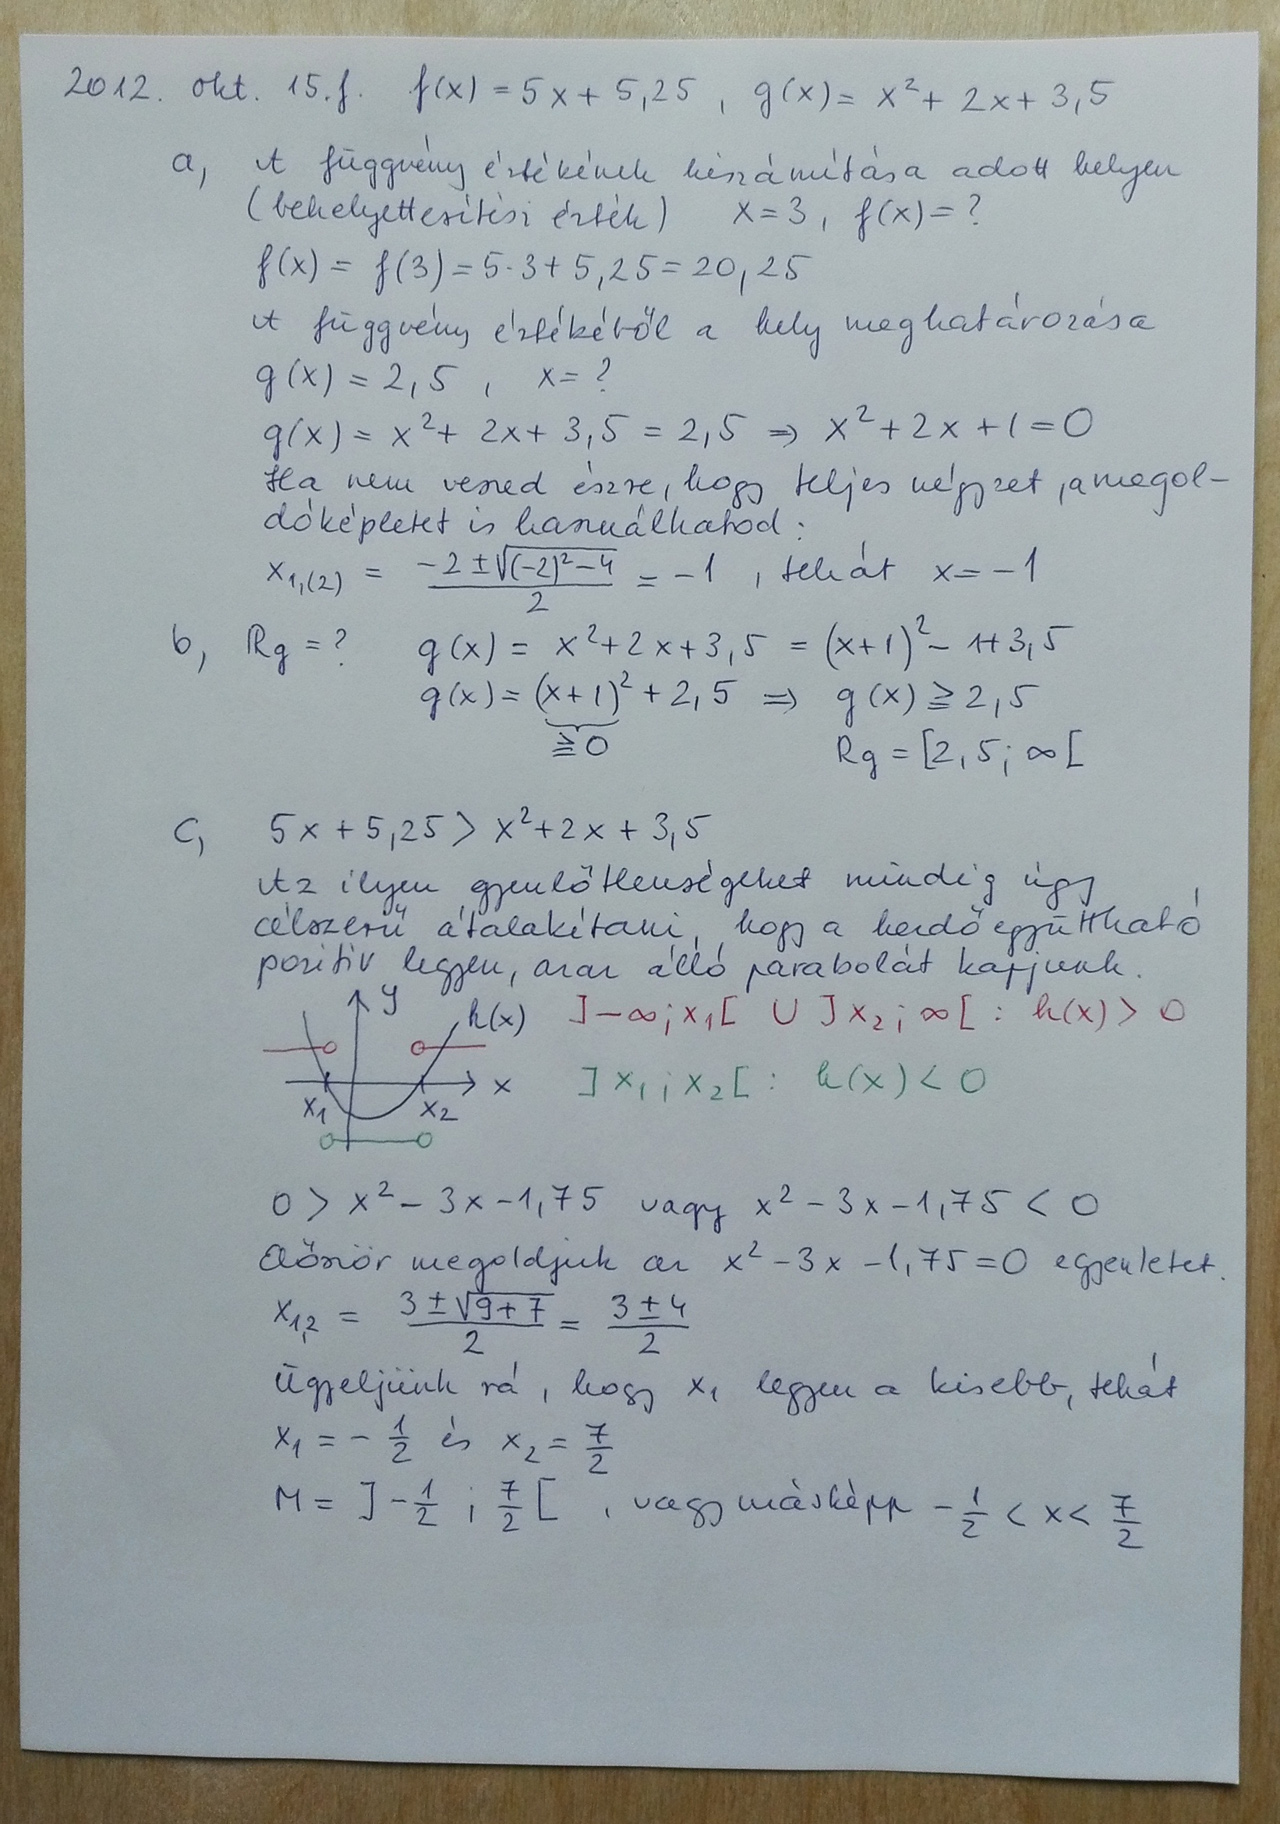 2012. okt. 15.f. f(x) = 5x + 5,25 , g(x) = x² + 2x + 3,5
a, A függvény értékének kiszámítása adott helyen
(behelyettesítési érték) x = 3, f(x) = ?
f(x) = f(3) = 5·3 + 5,25 = 20,25
A függvény értékéből a hely meghatározása
g(x) = 2,5 , x = ?
g(x) = x² + 2x + 3,5 = 2,5 ⇒ x² + 2x + 1 = 0
Ha nem veszed észre, hogy teljes négyzet, a megol-
dóképletet is használhatod:
x₁,(₂) = (-2 ± √((-2)² - 4))/2 = -1 , tehát x = -1
b, Rg = ? g(x) = x² + 2x + 3,5 = (x+1)² - 1 + 3,5
g(x) = (x+1)² + 2,5 ⇒ g(x) ≧ 2,5
≧ 0 Rg = [2,5; ∞[
c, 5x + 5,25 > x² + 2x + 3,5
Az ilyen egyenlőtlenségeket mindig úgy
célszerű átalakítani, hogy a kezdőegyüttható
pozitív legyen, azaz álló parabolát kapjunk.
y h(x) ]-∞; x₁[ ∪ ]x₂; ∞[ : h(x) > 0
x x₁ x₂ ]x₁; x₂[ : h(x) < 0
0 > x² - 3x - 1,75 vagy x² - 3x - 1,75 < 0
Először megoldjuk az x² - 3x - 1,75 = 0 egyenletet.
x₁,₂ = (3 ± √(9+7))/2 = (3 ± 4)/2
Ügyeljünk rá, hogy x₁ legyen a kisebb, tehát
x₁ = -1/2 és x₂ = 7/2
M = ]-1/2 ; 7/2[ , vagy másképp -1/2 < x < 7/2